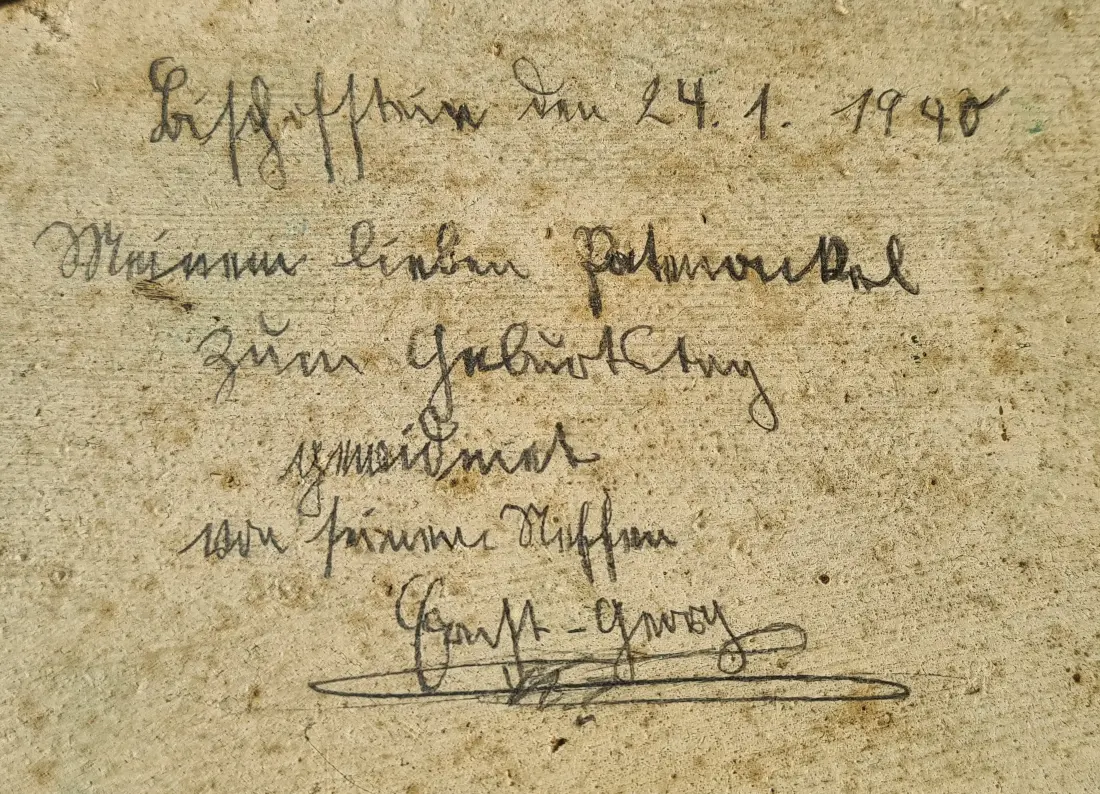 Bischofstein den 24. 1. 1940
Meinem lieben Patenonkel
zum Geburtstag
gewidmet
von seinem Neffen
Horst-Georg